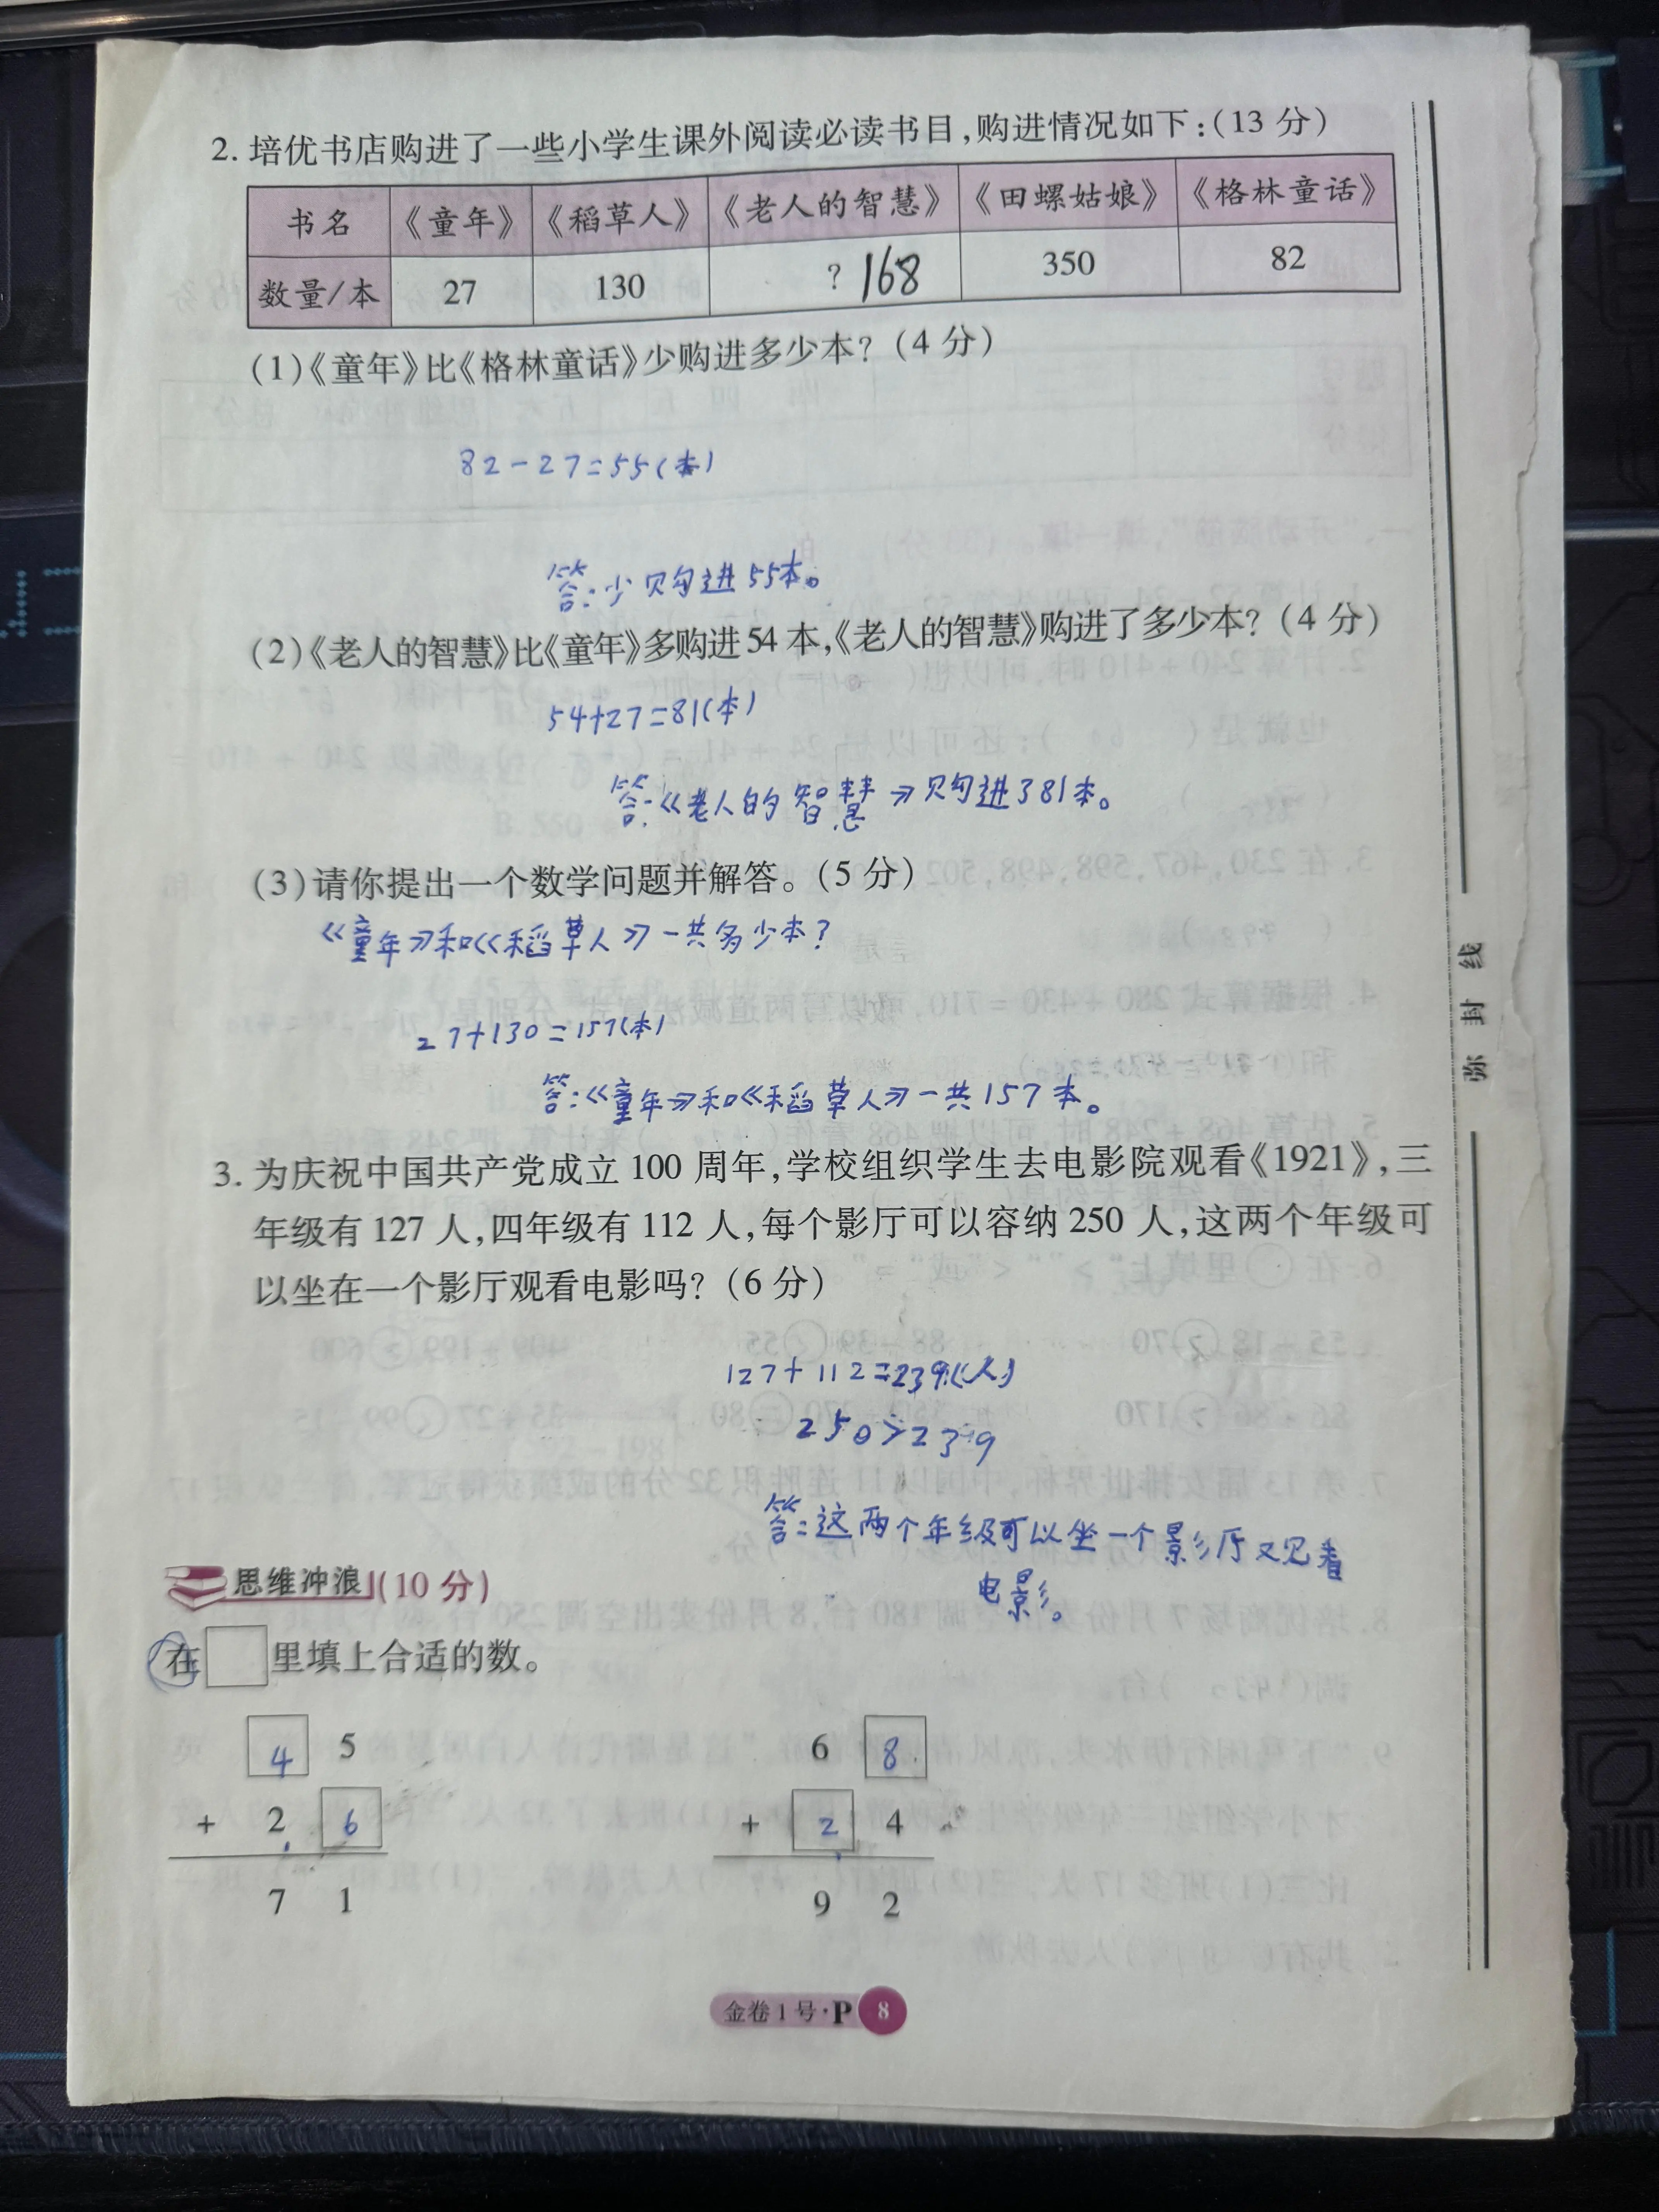 2. 培优书店购进了一些小学生课外阅读必读书目,购进情况如下:(13 分)
书名 《童年》 《稻草人》 《老人的智慧》 《田螺姑娘》 《格林童话》
数量/本 27 130 ? 168 350 82
(1)《童年》比《格林童话》少购进多少本? (4 分)
82-27=55(本)
答:少购进55本。
(2)《老人的智慧》比《童年》多购进 54 本,《老人的智慧》购进了多少本? (4 分)
54+27=81(本)
答:《老人的智慧》购进了81本。
(3)请你提出一个数学问题并解答。(5 分)
《童年》和《稻草人》一共多少本?
27+130=157(本)
答:《童年》和《稻草人》一共157本。
3. 为庆祝中国共产党成立 100 周年,学校组织学生去电影院观看《1921》,三
年级有 127 人,四年级有 112 人,每个影厅可以容纳 250 人,这两个年级可
以坐在一个影厅观看电影吗? (6 分)
127+112=239(人)
250>239
答:这两个年级可以坐一个影厅观看
电影。
思维冲浪 (10 分)
在 里填上合适的数。
4 5 6 8
+ 2 6 + 2 4
7 1 9 2
金卷 1 号·P 8
弥 封 线